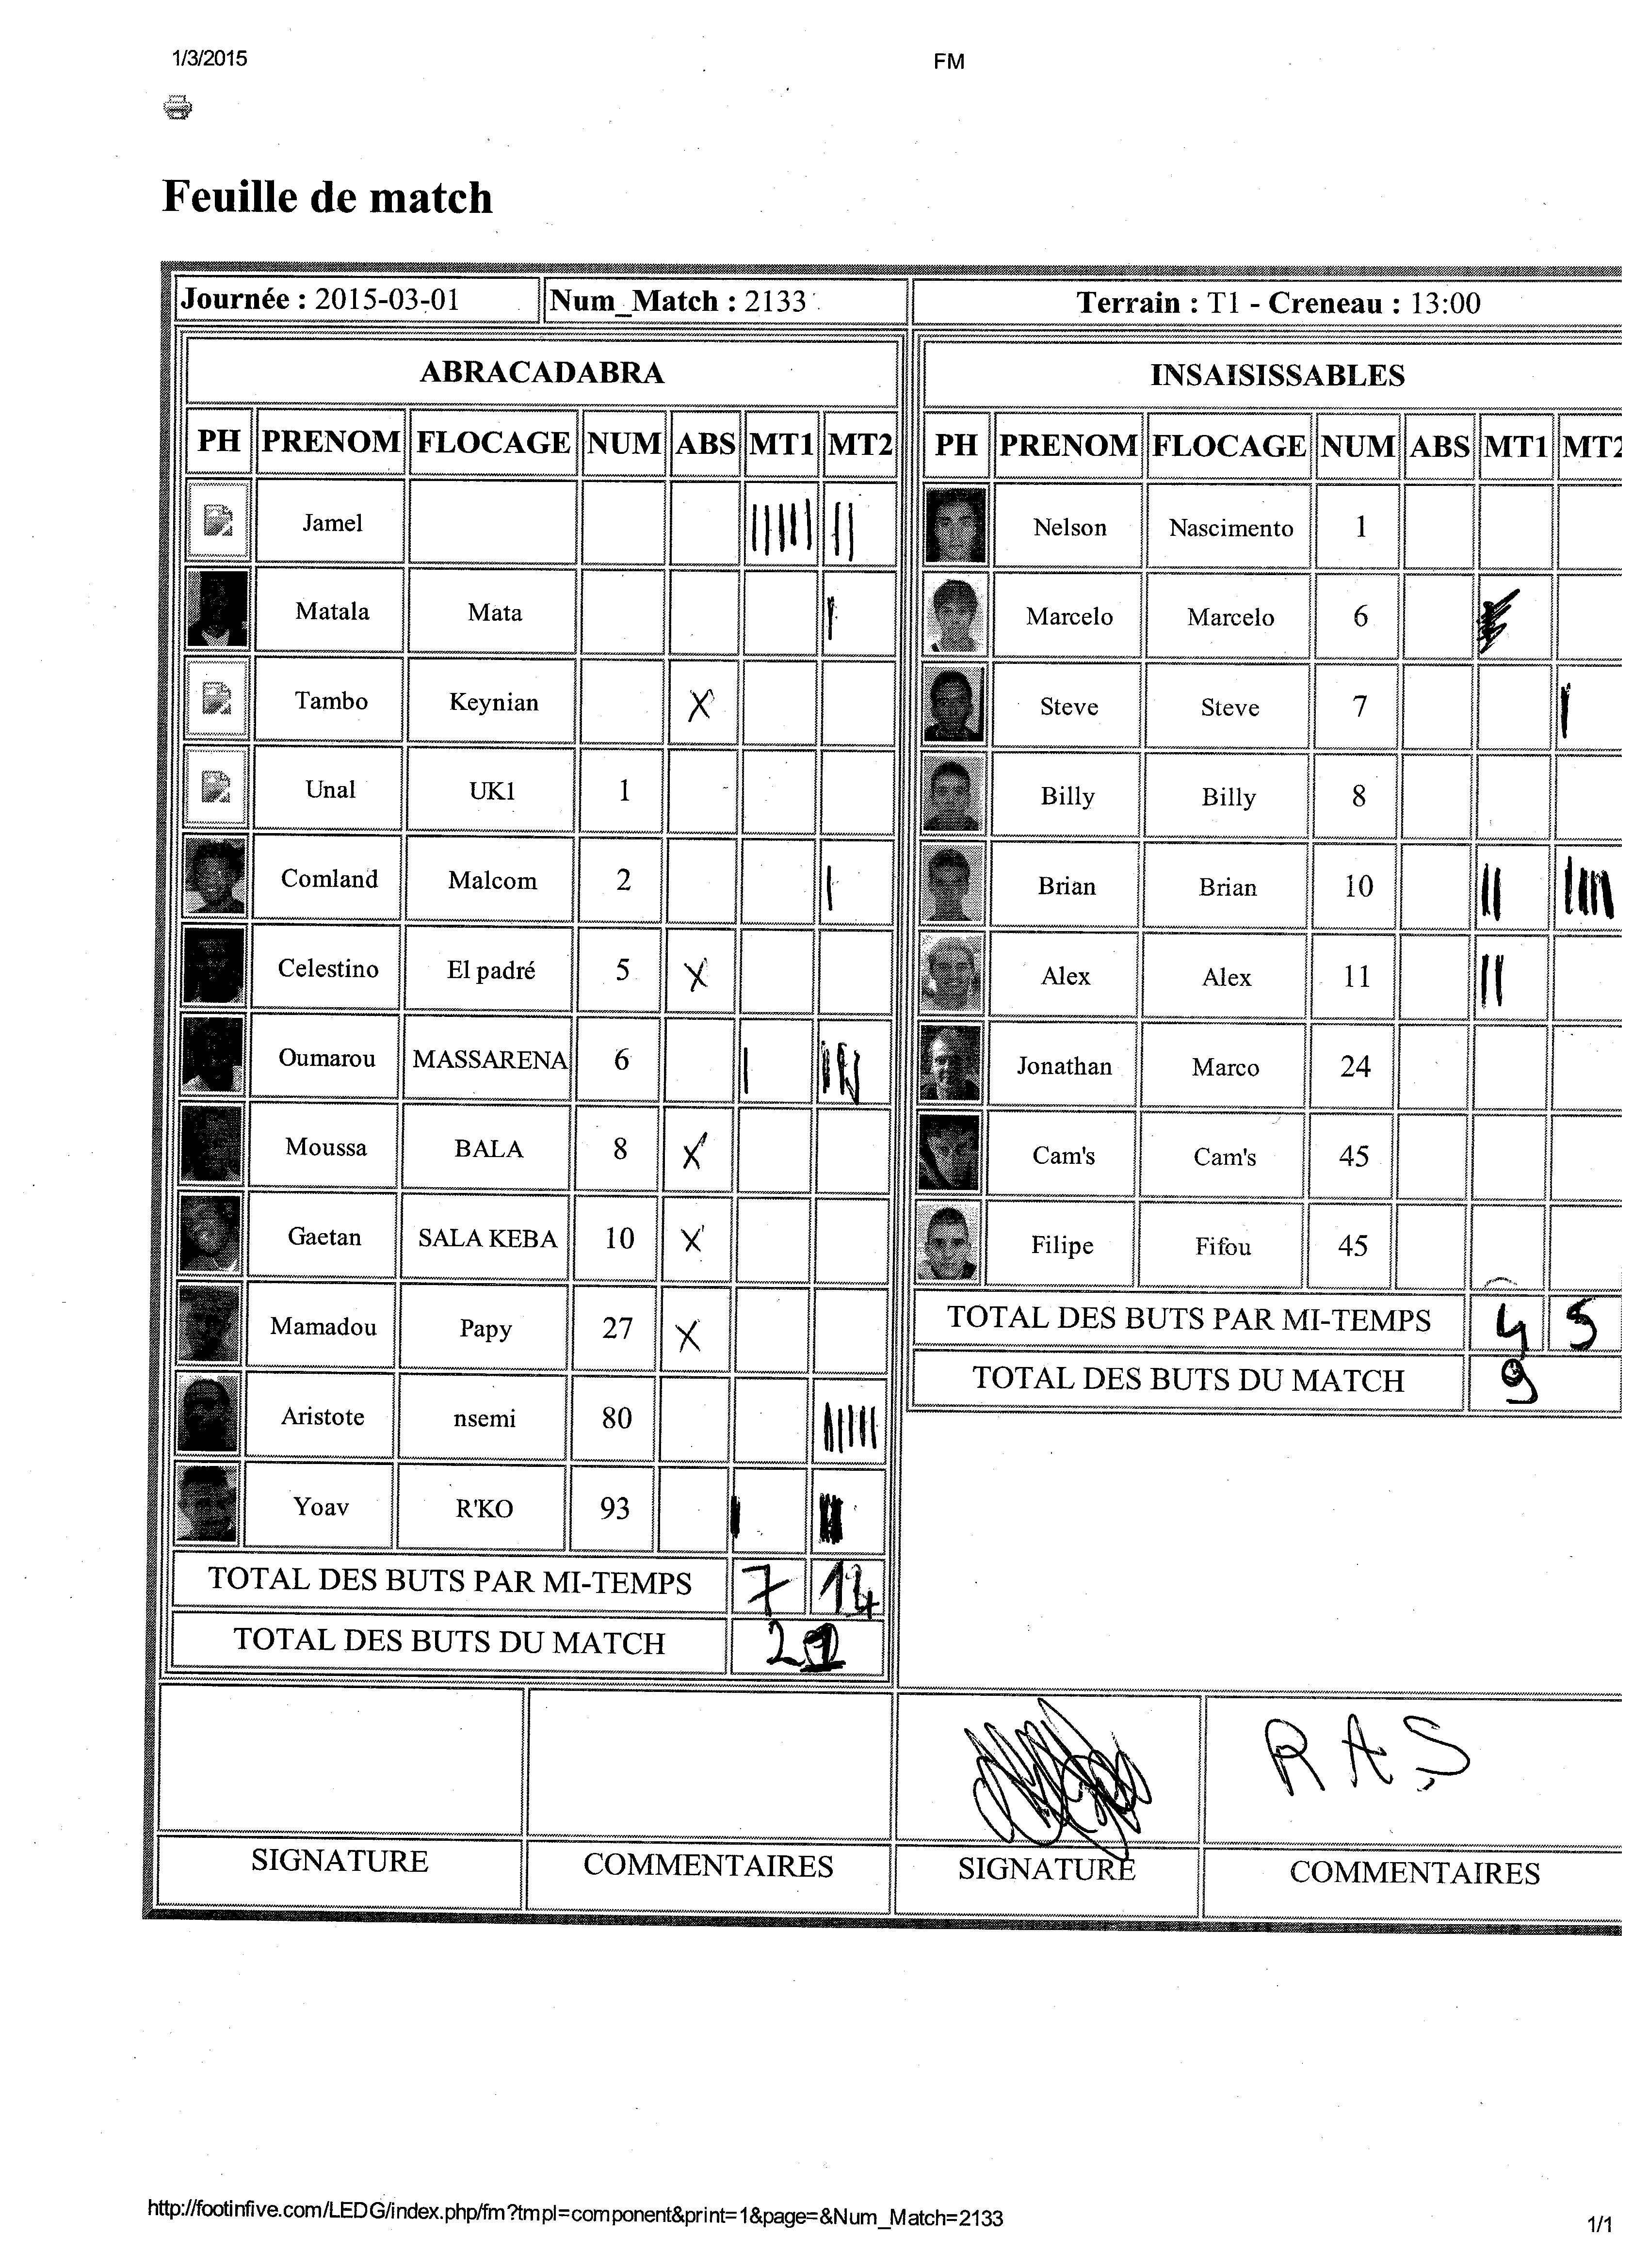 1/3/2015 FM
Feuille de match
Journée : 2015-03-01 Num_Match : 2133 Terrain : T1 - Creneau : 13:00
ABRACADABRA
PH PRENOM FLOCAGE NUM ABS MT1 MT2
Jamel |||||| ||
Matala Mata |
Tambo Keynian X
Unal UK1 1
Comland Malcom 2 |
Celestino El padré 5 X
Oumarou MASSARENA 6 |
Moussa BALA 8 X
Gaetan SALA KEBA 10 X
Mamadou Papy 27 X
Aristote nsemi 80
Yoav R'KO 93
TOTAL DES BUTS PAR MI-TEMPS 7 14
TOTAL DES BUTS DU MATCH 21
INSAISISSABLES
PH PRENOM FLOCAGE NUM ABS MT1 MT2
Nelson Nascimento 1
Marcelo Marcelo 6
Steve Steve 7 |
Billy Billy 8
Brian Brian 10 ||
Alex Alex 11 ||
Jonathan Marco 24
Cam's Cam's 45
Filipe Fifou 45
TOTAL DES BUTS PAR MI-TEMPS 4 5
TOTAL DES BUTS DU MATCH 9
RAS
SIGNATURE COMMENTAIRES SIGNATURE COMMENTAIRES
http://footinfive.com/LEDG/index.php/fm?tmpl=component&print=1&page=&Num_Match=2133 1/1